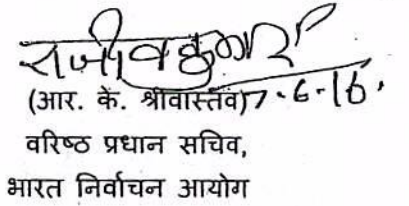 राजीव कुमार
(आर. के. श्रीवास्तव) 7.6.16.
वरिष्ठ प्रधान सचिव,
भारत निर्वाचन आयोग